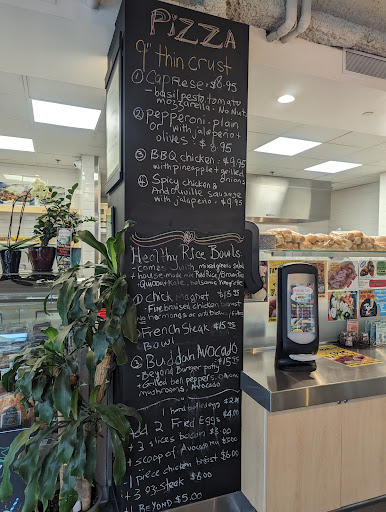 PiZZA
9" thin crust
① Caprese - $8.95
- basil pesto, tomato
mozzarella - No Nuts
② pepperoni - plain
or with jalapeño +
olives - $8.95
③ BBQ chicken - $9.95
with pineapple + grilled
onions
④ Spicy chicken &
Andouille sausage
with jalapeño - $9.95
Healthy Rice Bowls
- comes with mixed greens salad
house made
① Chick Magnet $15.95
French Steak $15.95
Bowl
③ Buddah Avocado
- Beyond Burger patty $15.95
+ Grilled bell peppers, onions
mushrooms, Avocado
Add 2 Fried Eggs $4.00
+ 3 slices bacon $3.00
+ scoop of Avocado $3.00
+ 1 piece chicken breast $6.00
+ 3 oz. steak $6.00
+ 1 BEYOND $5.00